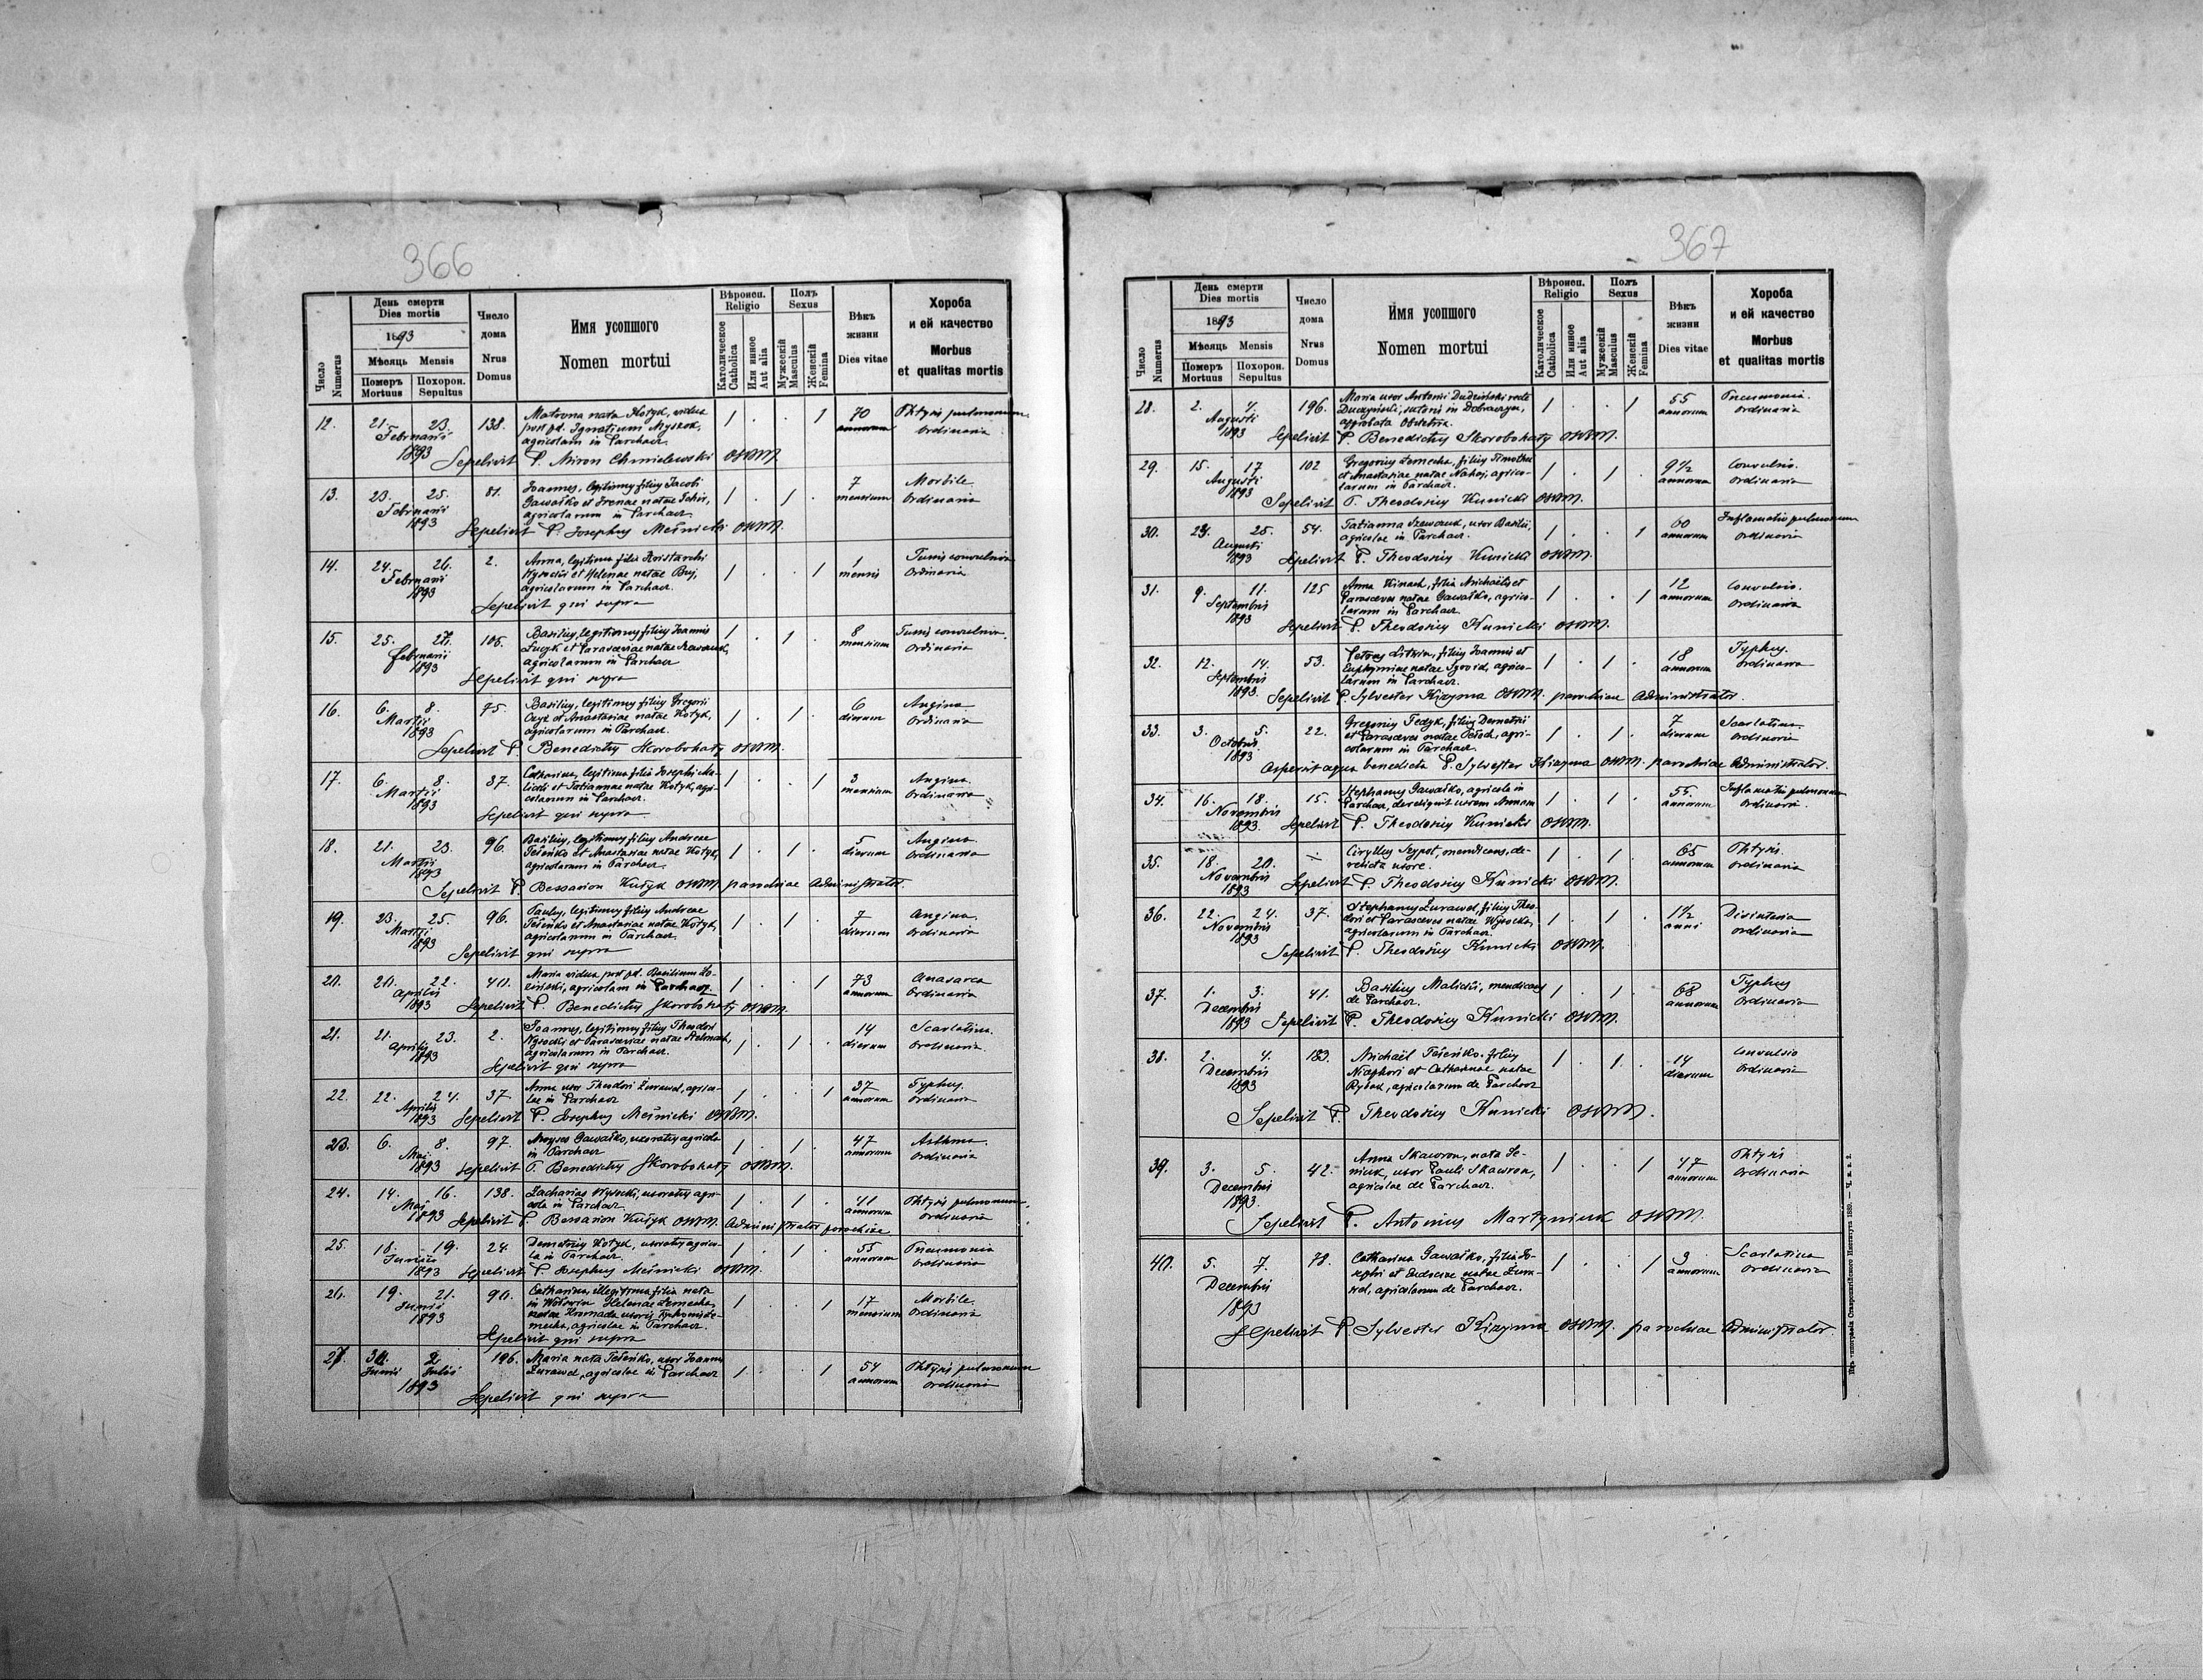 366
Число Numerus
День смерти
Dies mortis
1893
Мѣсяць Mensis
Померъ Mortuus
Похорон. Sepultus
Число дома
Nrus Domus
Имя усопшого
Nomen mortui
Вѣроисп. Religio
Католическое Catholica
Или инное Aut alia
Полъ Sexus
Мужескій Masculus
Женскій Femina
Вѣкъ жизни
Dies vitae
Хороба и ей качество
Morbus et qualitas mortis
12. 21. 23. 138. Matrona nata Kotyk, vidua 1 . . 1 70 Phtysis pulmonum
Februarii post pd. Ignatium annorum ordinaria
1893 agricolam in Parchacz.
Sepelivit P. Miron Chmielewski OSBM.
13. 23. 25. 81. Joannes, legitimus filius Jacobi 1 . 1 . 7 Morbile
Februarii Gawałko et Irenae natae mensium Ordinaria
1893 agricolarum in Parchacz.
Sepelivit P. Josephus Meśnicki OSBM.
14. 24. 26. 2. Anna, legitima filia Aristarchi 1 . . 1 1 Tussis convulsiva
Februarii Wysocki et Helenae natae Buj, mensis Ordinaria
1893 agricolarum in Parchacz.
Sepelivit qui supra
15. 25. 27. 105. Basilius, legitimus filius Joannis 1 . 1 . 8 Tussis convulsiva.
Februarii et Parasceviae natae mensium Ordinaria
1893 agricolarum in Parchacz
Sepelivit qui supra
16. 6. 8. 75. Basilius, legitimus filius Gregorii 1 . 1 . 6 Angina
Martii et Anastasiae natae Kotyk, dierum Ordinaria
1893 agricolarum in Parchacz.
Sepelivit P. Benedictus Skorobohaty OSBM.
17. 6. 8. 87. Catharina, legitima filia Josephi Ma- 1 . . 1 3 Angina.
Martii licki et Tatiannae natae Kotyk, agri- mensium Ordinaria
1893 colarum in Parchacz.
Sepelivit qui supra
18. 21. 23. 96. Basilius, legitimus filius Andreae 1 . 1 . 5 Angina
Martii Teleńko et Anastasiae natae Kotyk, dierum Ordinaria
1893 agricolarum in Parchacz
Sepelivit P. Bessarion OSBM parochiae Administrator.
19. 23. 25. 96. Paulus, legitimus filius Andreae 1 . 1 . 7 Angina.
Martii Teleńko et Anastasiae natae Kotyk, dierum Ordinaria
1893 agricolarum in Parchacz.
Sepelivit qui supra
20. 20. 22. 40. Maria vidua post pd. Basilium 1 . . 1 73 Anasarca
Aprilis agricolam in Parchacz annorum Ordinaria
1893 Sepelivit P. Benedictus Skorobohaty OSBM.
21. 21. 23. 2. Joannes, legitimus filius Theodori 1 . 1 . 14 Scarlatina.
Aprilis Wysocki et Parasceviae natae Stelmach, dierum Ordinaria
1893 agricolarum in Parchacz.
Sepelivit qui supra
22. 22. 24. 37. Anna uxor Theodori Żurawel, agrico- 1 . . 1 37 Typhus.
Aprilis lae in Parchacz annorum Ordinaria
1893 Sepelivit P. Josephus Meśnicki OSBM.
23. 6. 8. 97. Moyses Gawałko, uxoratus agricola 1 . 1 . 47 Asthma.
Mai in Parchacz annorum Ordinaria
1893 Sepelivit P. Benedictus Skorobohaty OSBM.
24. 14. 16. 138. Zacharias Wysocki, uxoratus agri- 1 . 1 . 41 Phtysis pulmonum.
Mai cola in Parchacz annorum ordinaria
1893 Sepelivit P. Bessarion OSBM Administrator parochiae
25. 18. 19. 24. Demetrius Kotyk, uxoratus agrico- 1 . 1 . 55 Pneumonia
Junii la in Parchacz annorum Ordinaria
1893 Sepelivit P. Josephus Meśnicki OSBM.
26. 19. 21. 90. Catharina, illegitima filia nata 1 . . 1 17 Morbile.
Junii in Helenae mensium Ordinaria
1893 natae Hromada uxoris
agricolae in Parchacz.
Sepelivit qui supra
27. 30. 2 196. Maria nata Teleńko, uxor Joannis 1 . 1 54 Phtysis pulmonum
Junii Julii Żurawel, agricolae in Parchacz annorum Ordinaria
1893
Sepelivit qui supra
367
Число Numerus
День смерти
Dies mortis
1893
Мѣсяць Mensis
Померъ Mortuus
Похорон. Sepultus
Число дома
Nrus Domus
Имя усопшого
Nomen mortui
Вѣроисп. Religio
Католическое Catholica
Или инное Aut alia
Полъ Sexus
Мужескій Masculus
Женскій Femina
Вѣкъ жизни
Dies vitae
Хороба и ей качество
Morbus et qualitas mortis
28. 2. 4. 196. Maria uxor Antonii Dudziński recte 1 . . 1 55 Pneumonia.
Augusti in annorum Ordinaria
1893 approbata Obstetrix.
Sepelivit P. Benedictus Skorobohaty OSBM.
29. 15. 17 102 Gregorius filius Timothei 1 . 1 . 9½ Convulsio.
Augusti et Anastasiae natae agrico- annorum Ordinaria
1893 larum in Parchacz.
Sepelivit P. Theodosius Kunicki OSBM.
30. 23. 25. 54. Tatianna Szewczuk, uxor Basilii, 1 . . 1 60 Inflamatio pulmonum
Augusti agricolae in Parchacz. annorum ordinaria
1893 Sepelivit P. Theodosius Kunicki OSBM.
31. 9. 11. 125 Anna Kinach, filia Michaëlis et 1 . . 1 12 Convulsio.
Septembris Parasceves natae Gawałko, agrico- annorum Ordinaria
1893 larum in Parchacz
Sepelivit P. Theodosius Kunicki OSBM.
32. 12. 14. 53. Petrus Litwin, filius Joannis et 1 . 1 . 18 Typhus.
Septembris Euphymiae natae agrico- annorum Ordinaria
1893. larum in Parchacz.
Sepelivit P. Sylvester Kizyma OSBM. parochiae Administrator.
33. 3. 5. 22. Gregorius Fedyk, filius Demetrii 1 . 1 . 7 Scarlatina
Octobris et Parasceves natae agri- dierum Ordinaria
1893 colarum in Parchacz.
Aspersit aqua benedicta P. Sylvester Kizyma OSBM. parochiae Administrator.
34. 16. 18. 15. Stephanus Gawałko, agricola in 1 . 1 . 55. Inflamatio pulmonum
Novembris Parchacz, dereliquit uxorem Annam annorum Ordinaria.
1893. Sepelivit P. Theodosius Kunicki OSBM.
35. 18. 20. ÷ Ciryllus mendicans, de- 1 . 1 . 65 Phtysis
Novembris relicta uxore. annorum ordinaria
1893 Sepelivit P. Theodosius Kunicki OSBM.
36. 22. 24. 37. Stephanus Żurawel, filius Theo- 1 . 1 . 1½ Disinteria
Novembris dori et Parasceves natae Wysocka, anni Ordinaria
1893 agricolarum in Parchacz.
Sepelivit P. Theodosius Kunicki OSBM.
37. 1. 3. 41. Basilius Malicki, mendicans 1 . 1 . 68 Typhus
Decembris de Parchacz. annorum Ordinaria
1893 Sepelivit P. Theodosius Kunicki OSBM.
38. 2. 4. 183. Michaël Teleńko, filius 1 . 1 . 14 Convulsio
Decembris Nicephori et Catharinae natae dierum Ordinaria
1893 agricolarum de Parchacz
Sepelivit P. Theodosius Kunicki OSBM.
39. 3. 5. 42. Anna Skawron, nata Se- 1 . . 1 47 Phtysis
Decembris niuk, uxor Pauli Skawron, annorum Ordinaria
1893. agricolae de Parchacz.
Sepelivit P. Antonius Martyniuk OSBM.
40. 5. 7. 78. Catharina Gawałko, filia Jo- 1 . . 1 3 Scarlatina
Decembris sephi et Eudociae natae Żura- annorum Ordinaria
1893 wel, agricolarum de Parchacz.
Sepelivit P. Sylvester Kizyma OSBM. parochiae Administrator.
Изъ типографіи Ставропигійского Института 1889.